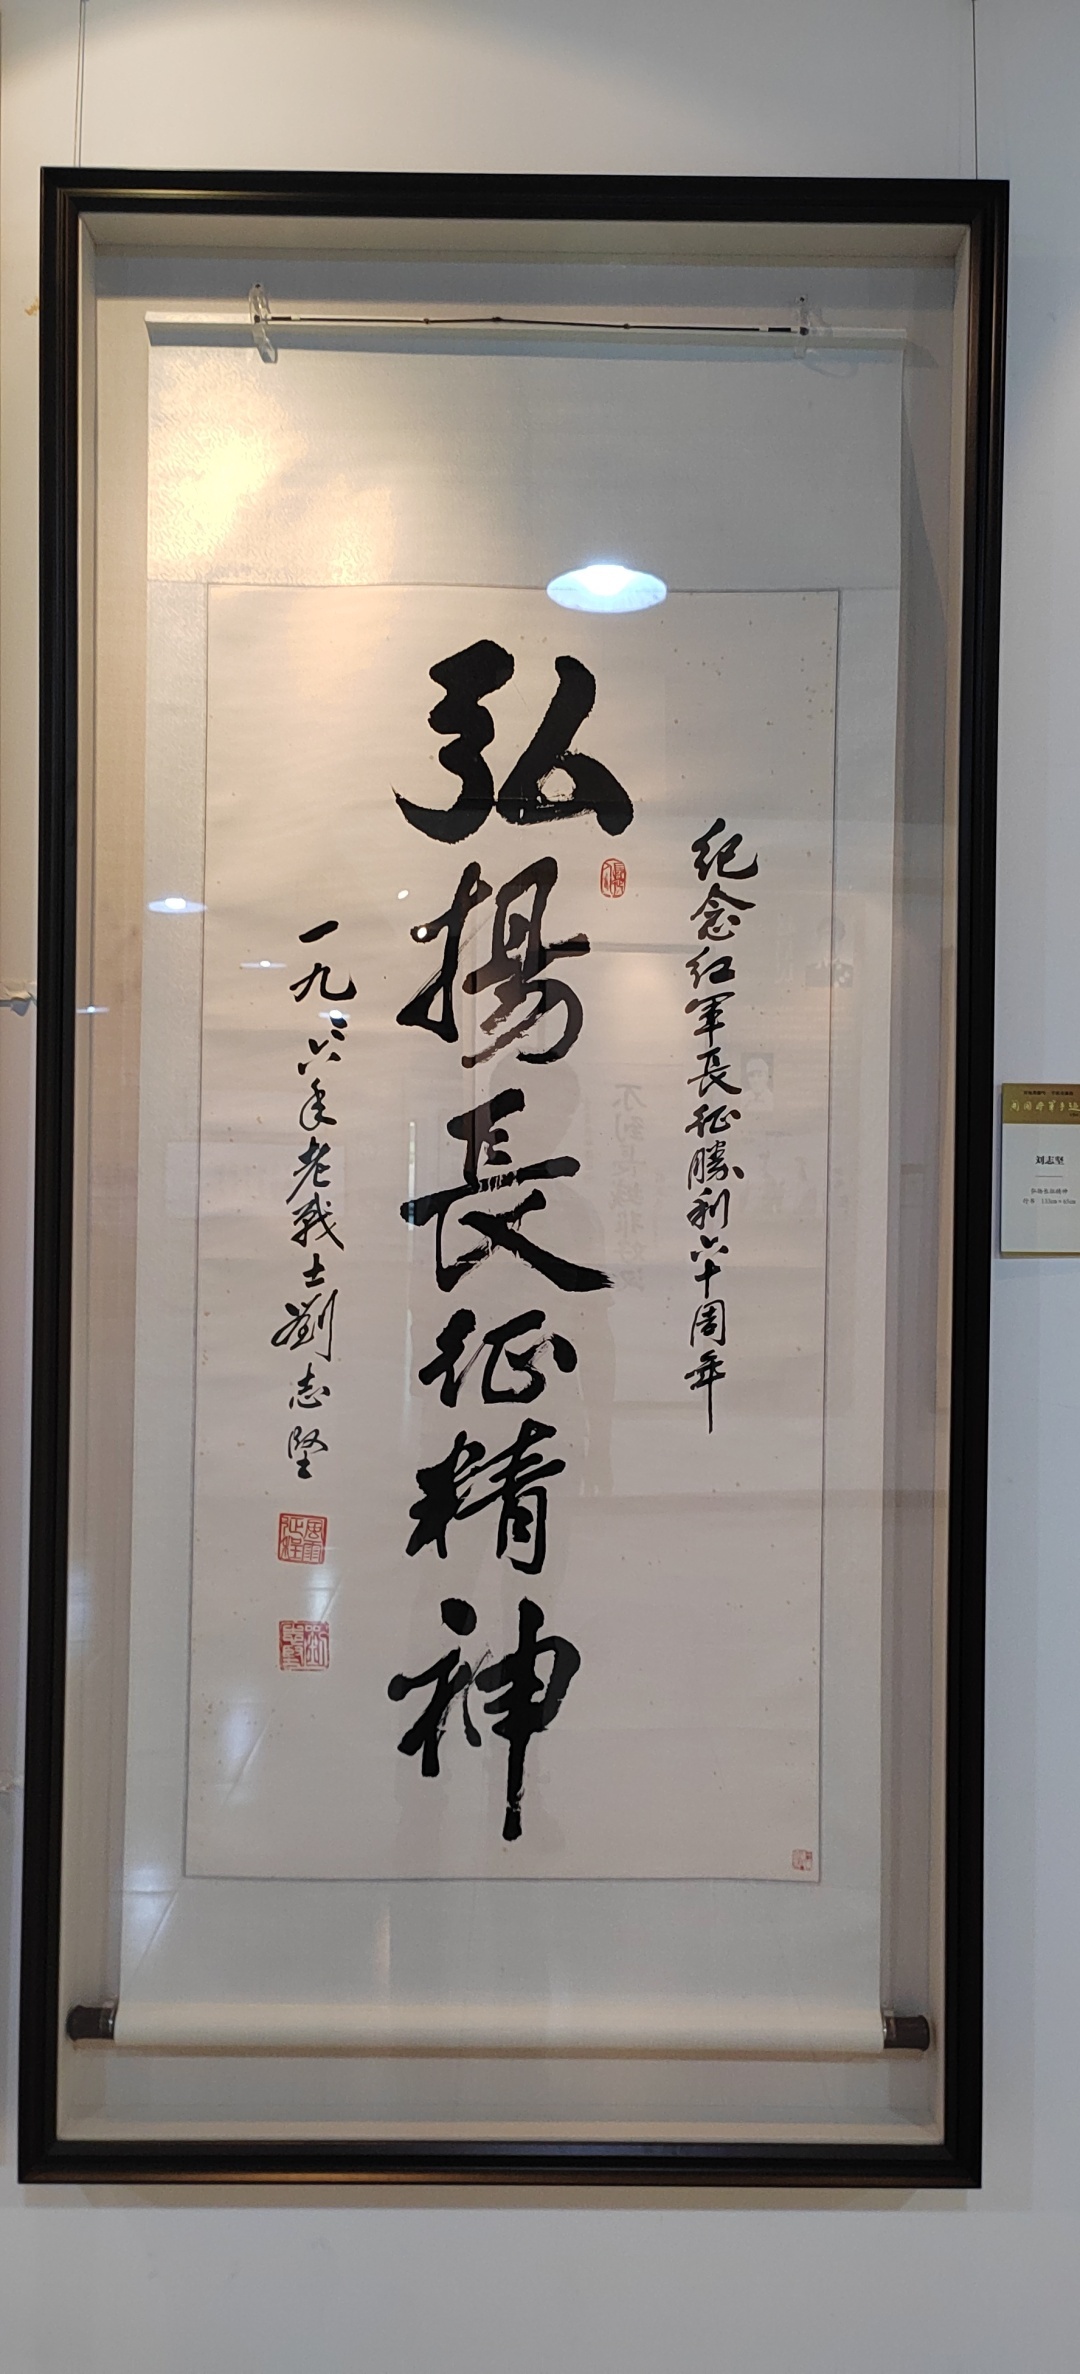 纪念红軍長征勝利六十周年
弘揚長征精神
一九々六年老戰士劉志堅
風雨征程
刘志坚
弘扬长征精神